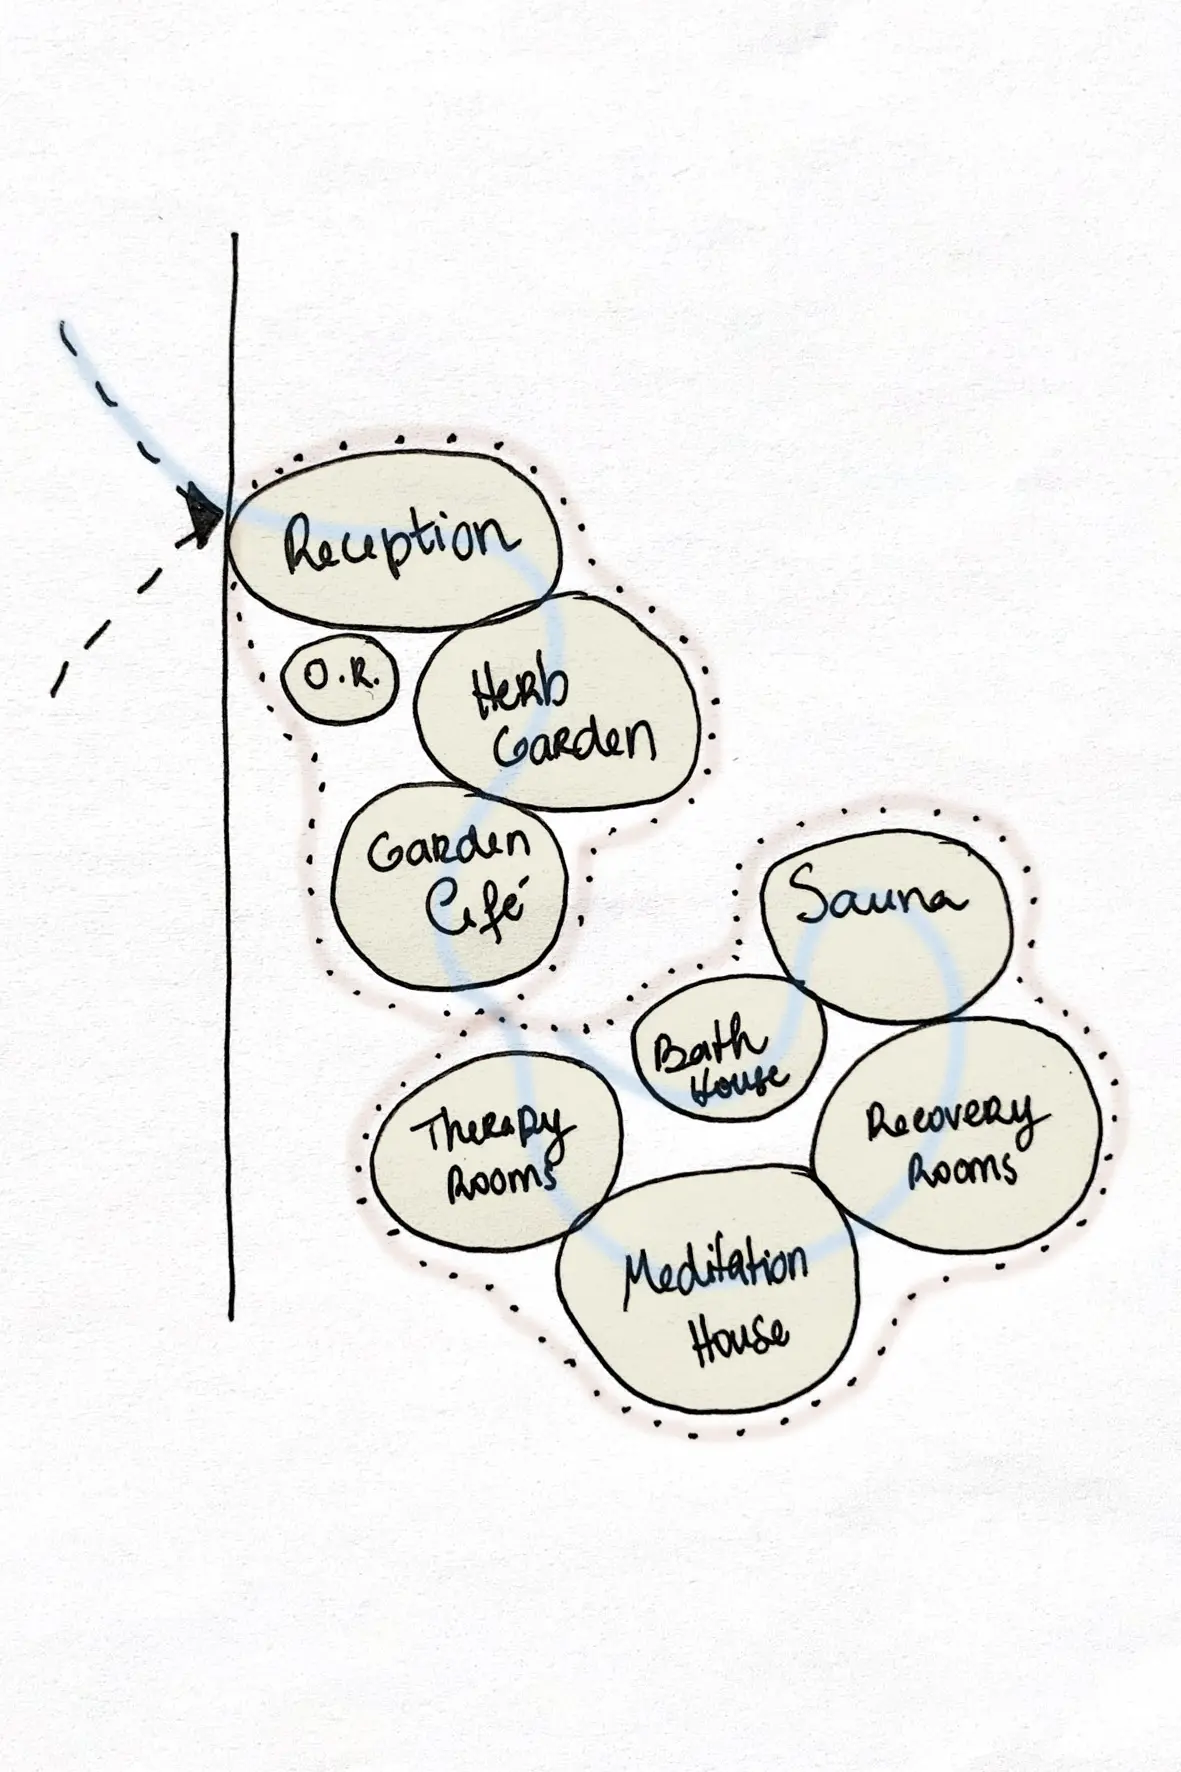 Reception
O.R.
Herb
Garden
Garden
Café
Sauna
Bath
House
Therapy
Rooms
Recovery
Rooms
Meditation
House